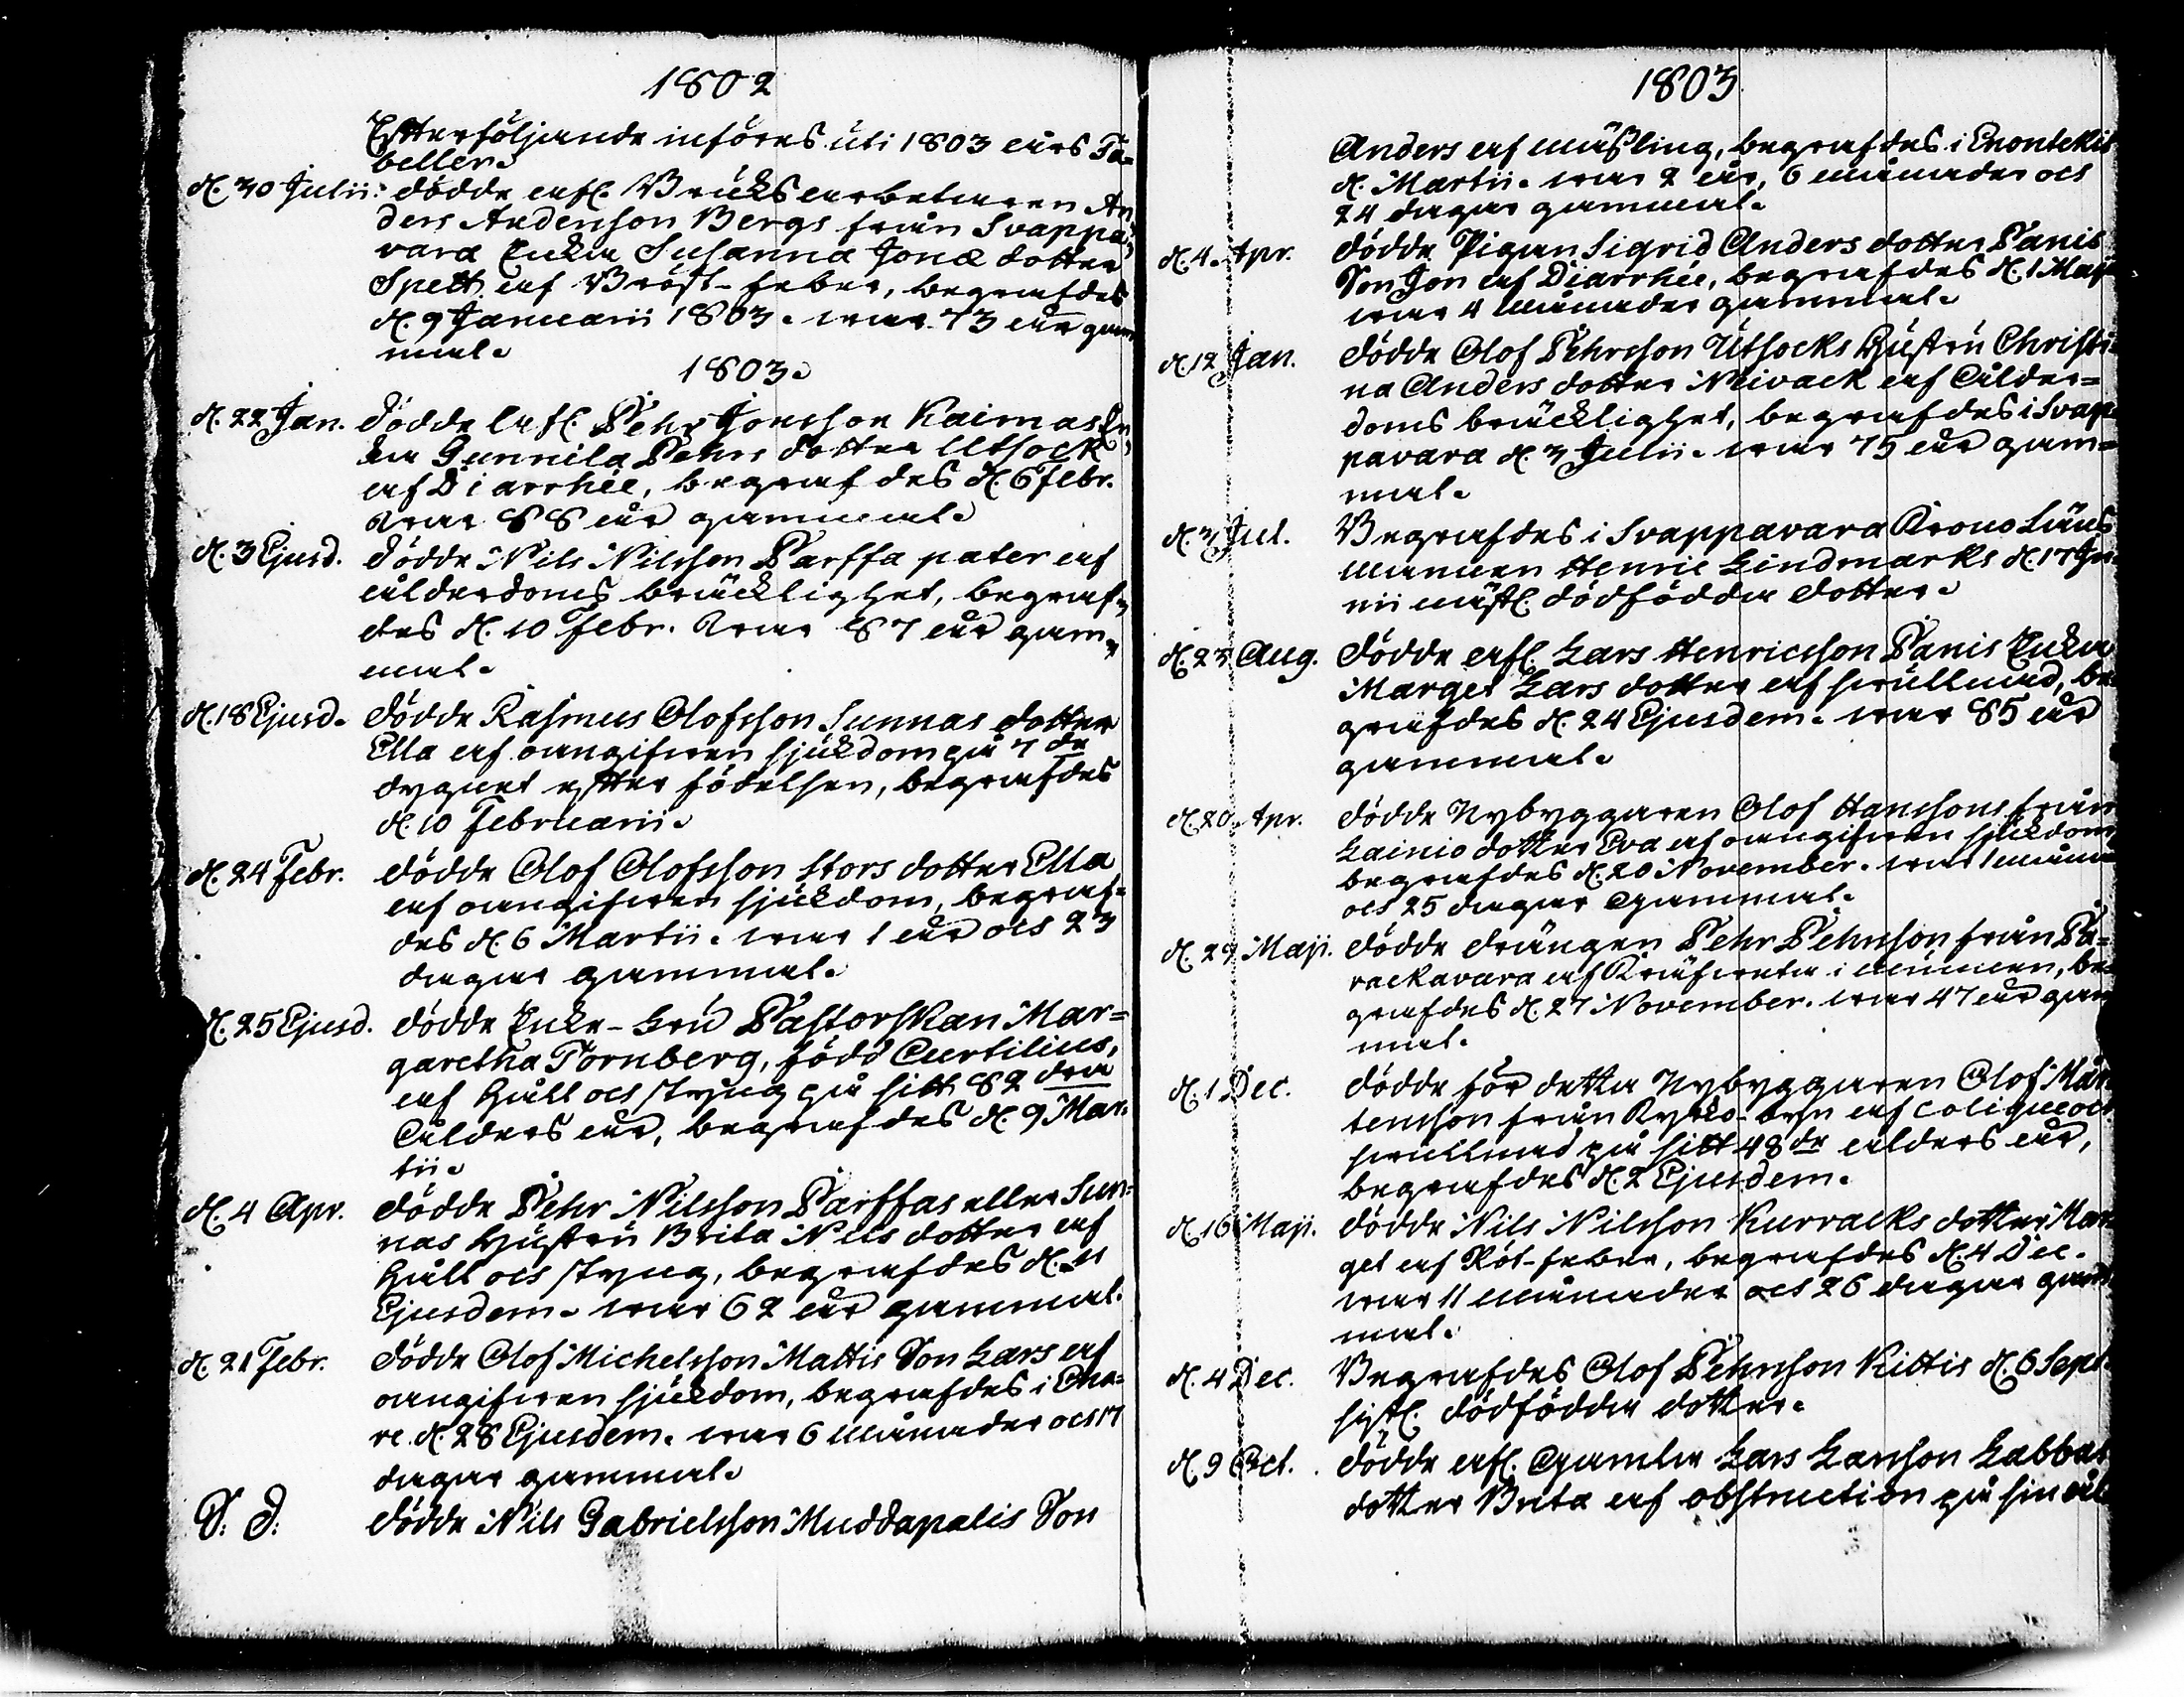 1802
Efterföljande införes uti 1803 års Ta=
beller.
d. 30 Julii: dödde afl. Bruksarbetaren An
ders Andersson Bergs från Svappa
vara Enka Susanna Jonæ dotter
Spett af Bröst-feber, begrafdes
d. 9 Januarii 1803. war 73 år gam
mal.
1803.
d. 22 Jan. dödde afl. Pehr Jonsson Kaimas En
ka Gunnila Pehrs dotter Utsock
af Diarrhée, begrafdes d. 6 Febr.
war 88 år gammal.
d. 3 Ejusd. dödde Nils Nilsson Parffa pater af
ålderdoms bräcklighet, begraf,
des d. 10 Febr. war 87 år gam,
mal.
d. 18 Ejusd. dödde Rasmus Olofsson Sunnas dotter
Ella af oangifwen sjukdom på 7de
dygnet efter födelsen, begrafdes
d. 10 Februarii.
d. 24 Febr. dödde Olof Olofsson Stors dotter Ella
af oangifwen sjukdom, begraf=
des d. 6 Martii. war 1 år och 23
dagar gammal.
d. 25 Ejusd. dödde Enke-Fru Pastorskan Mar=
garetha Tornberg, född Curtilius,
af Håll och Styng på sitt 82dra
Ålders år, begrafdes d. 9 Mar
tii.
d. 4 Apr. dödde Pehr Nilsson Parffas eller Sun=
nas Hustru Brita Nils dotter af
Håll och Styng, begrafdes d. 11
Ejusdem. war 62 år gammal.
d. 21 Febr. dödde Olof Michelsson Mattis Son Lars af
oangifwen sjukdom, begrafdes i Ena=
re d. 28 Ejusdem. war 6 månader och 17
dagar gammal.
S. D. dödde Nils Gabrielsson Muddapalis Son
1803
Anders af mäßling, begrafdes i Enontekis
d. Martii. war 2 år, 6 månader och
24 dagar gammal.
d. 4. Apr. dödde Pigan Sigrid Anders dotter Panis
Son Jon af Diarrhée, begrafdes d. 1 Maji
war 4 månader gammal.
d. 12 Jan. dödde Olof Pehrsson Utsocks Hustru Christi=
na Anders dotter Nivack af Ålder=
doms bräcklighet, begrafdes i Svap
pavara d. 3 Julii. war 75 år gam=
mal.
d. 3 Jul. Begrafdes i Svappavara Krono Läns
mannen Henric Lindmarks d. 17 Ju
nii näst. dödfödda dotter.
d. 23 Aug. dödde afl. Lars Henricsson Panis Enka
Marget Lars dotter af swullnad, be
grafdes d. 24 Ejusdem. war 85 år
gammal.
d. 20. Apr. dödde Nybyggaren Olof Hanssons från
Lainio dotter Eva af oangifwen sjukdom
begrafdes d. 20 November. war 1 måna
och 25 dagar gammal.
d. 29 Maji. dödde drängen Pehr Pehrsson från Pa=
rackavara af Kräfweta i munnen, be
grafdes d. 27 November. war 47 år gam
mal.
d. 1 Dec. dödde för detta Nybyggaren Olof Mår
tensson från Kyrko-byn af colique och
swullnad på sitt 48de ålders år,
begrafdes d. 2 Ejusdem.
d. 16 Maji. dödde Nils Nilsson Kurracks dotter Mar
get af Röt-feber, begrafdes d. 4 Dec.
war 11 månader och 26 dagar gam
mal.
d. 4 Dec. Begrafdes Olof Pehrsson Kittis d. 6 Sept.
sistl. dödfödda dotter.
d. 9 Oct. dödde afl. Gamla Lars Larsson Labbas
dotter Brita af obstruction på sin ål